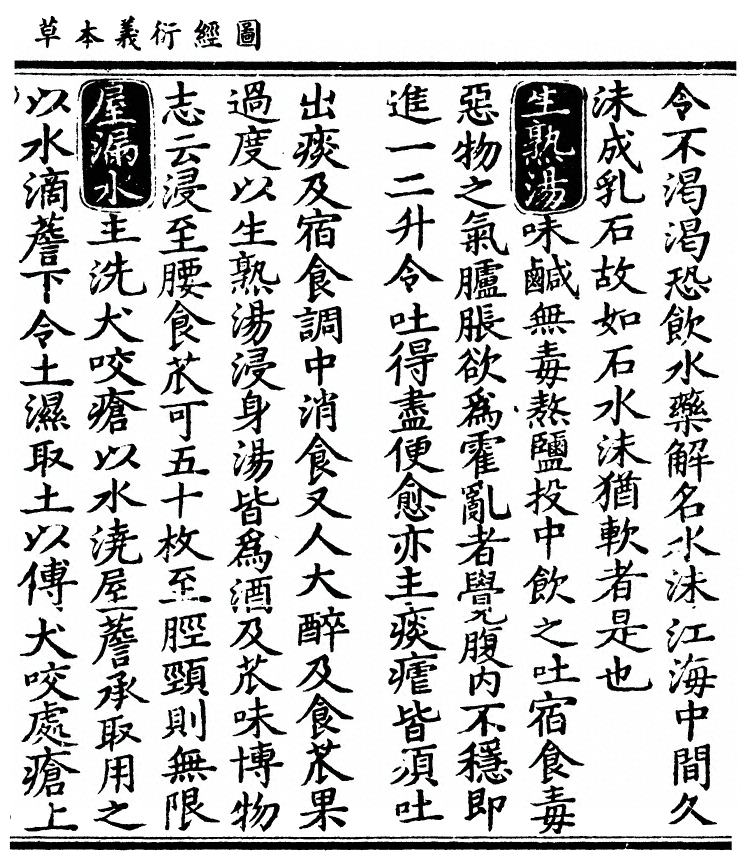 圖經衍義本草
令不渴渴恐飲水藥解名水沫江海中間久
沫成乳石故如石水沫猶軟者是也
生熟湯味鹹無毒熬鹽投中飲之吐宿食毒
惡物之氣臚脹欲爲霍亂者覺腹内不穩即
進一二升令吐得盡便愈亦主痰瘧皆須吐
出痰及宿食調中消食又人大醉及食苽果
過度以生熟湯浸身湯皆爲酒及苽味博物
志云浸至腰食苽可五十枚至脛頸則無限
屋漏水主洗犬咬瘡以水澆屋薝承取用之
以水滴薝下令土濕取土以傅犬咬處瘡上